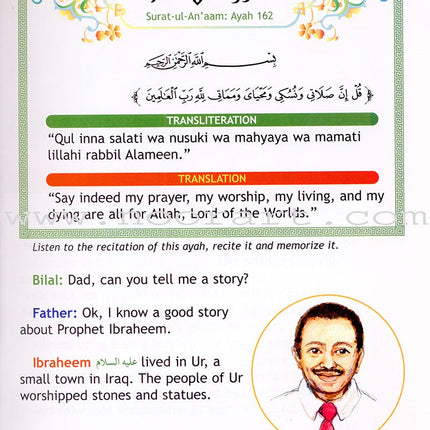 Surat-ul-An'aam: Ayah 162
بِسْمِ اللَّهِ الرَّحْمَٰنِ الرَّحِيمِ
﴿ قُلْ إِنَّ صَلَاتِي وَنُسُكِي وَمَحْيَايَ وَمَمَاتِي لِلَّهِ رَبِّ الْعَالَمِينَ ﴾
TRANSLITERATION
“Qul inna salati wa nusuki wa mahyaya wa mamati
lillahi rabbil Alameen.”
TRANSLATION
“Say indeed my prayer, my worship, my living, and my
dying are all for Allah, Lord of the Worlds.”
www.noorart.com
Listen to the recitation of this ayah, recite it and memorize it.
Bilal: Dad, can you tell me a story?
Father: Ok, I know a good story
about Prophet Ibraheem.
Ibraheem عليه السلام lived in Ur, a
small town in Iraq. The people of Ur
worshipped stones and statues.